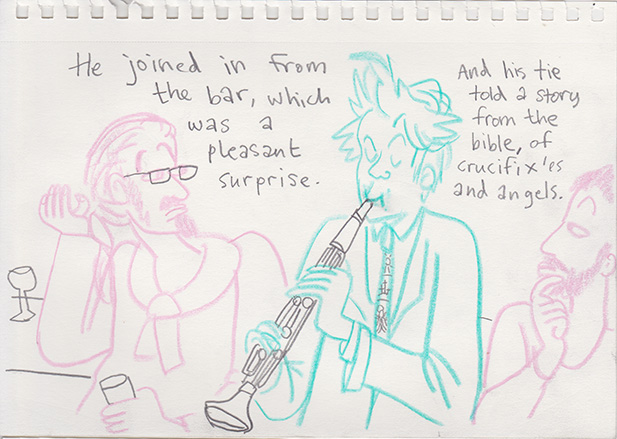 He joined in from
the bar, which
was a
pleasant
surprise.
And his tie
told a story
from the
bible, of
crucifix'es
and angels.